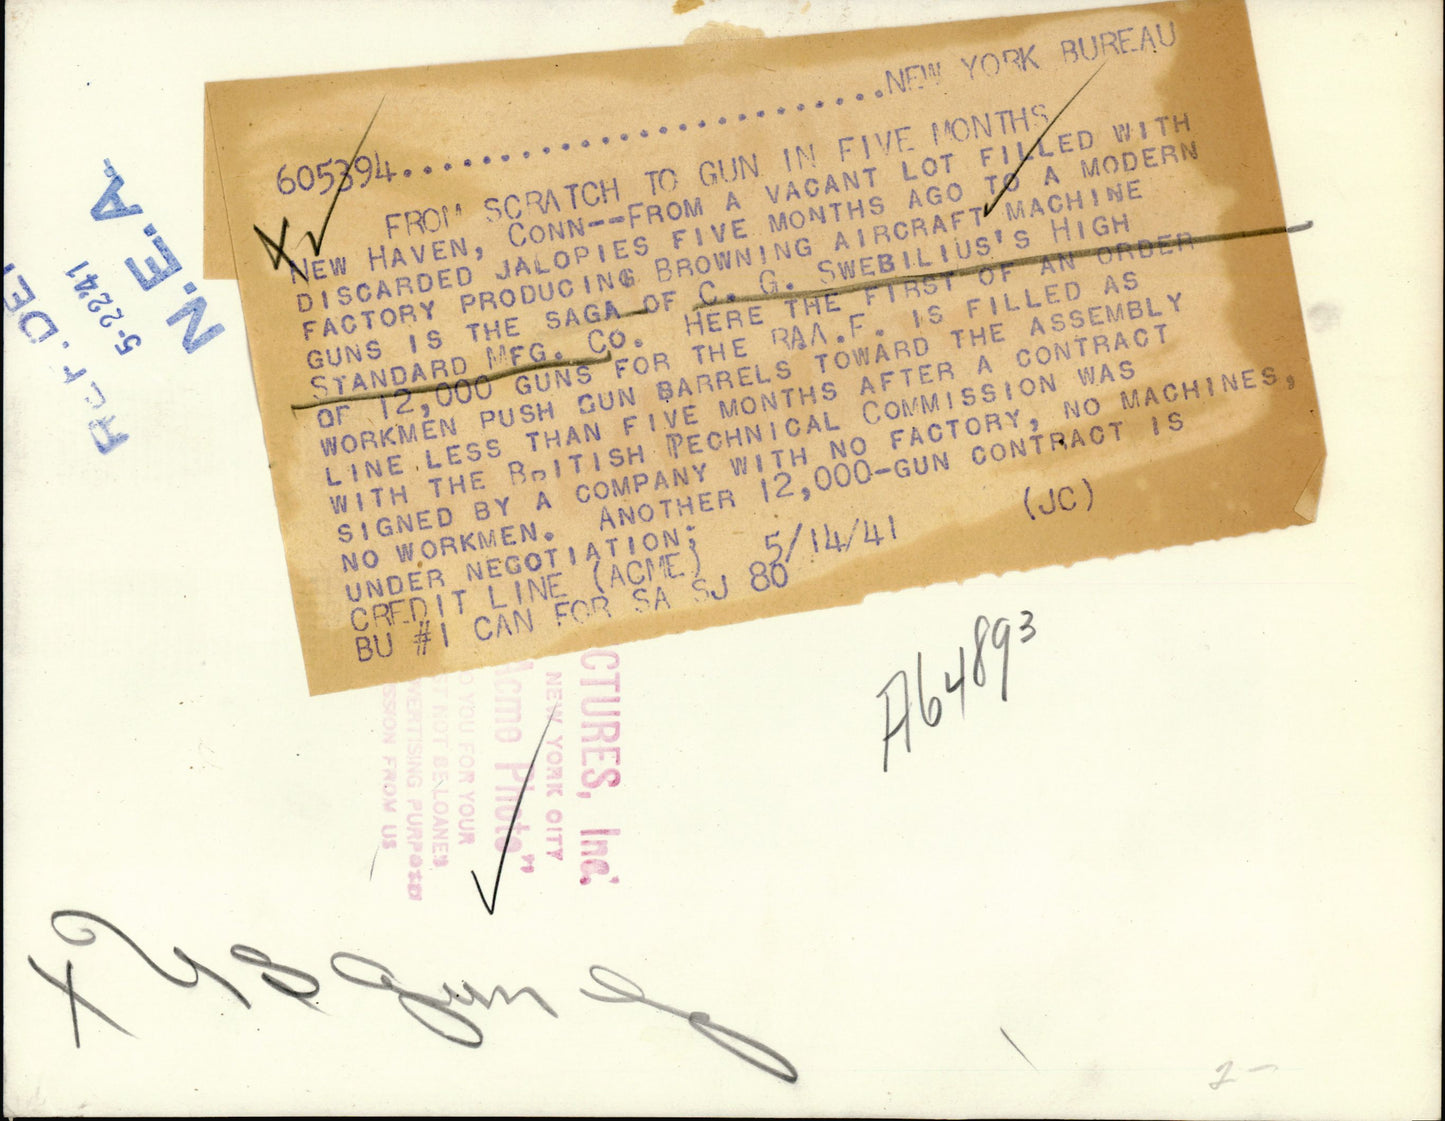 605394...................................NEW YORK BUREAU
FROM SCRATCH TO GUN IN FIVE MONTHS
NEW HAVEN, CONN--FROM A VACANT LOT FILLED WITH
DISCARDED JALOPIES FIVE MONTHS AGO TO A MODERN
FACTORY PRODUCING BROWNING AIRCRAFT MACHINE
GUNS IS THE SAGA OF C. G. SWEBILIUS'S HIGH
STANDARD MFG. CO. HERE THE FIRST OF AN ORDER
OF 12,000 GUNS FOR THE R.A.F. IS FILLED AS
WORKMEN PUSH GUN BARRELS TOWARD THE ASSEMBLY
LINE LESS THAN FIVE MONTHS AFTER A CONTRACT
WITH THE BRITISH TECHNICAL COMMISSION WAS
SIGNED BY A COMPANY WITH NO FACTORY, NO MACHINES,
NO WORKMEN. ANOTHER 12,000-GUN CONTRACT IS
UNDER NEGOTIATION;
CREDIT LINE (ACME) 5/14/41 (JC)
BU #1 CAN FOR SA SJ 80
N.E.A.
5-22-41
REF. DE
A64893
CTURES, Inc.
NEW YORK CITY
Acme Photo"
O YOU FOR YOUR
ST NOT BE LOANED
VERTISING PURPO
SSION FROM US
X US Gun
2-